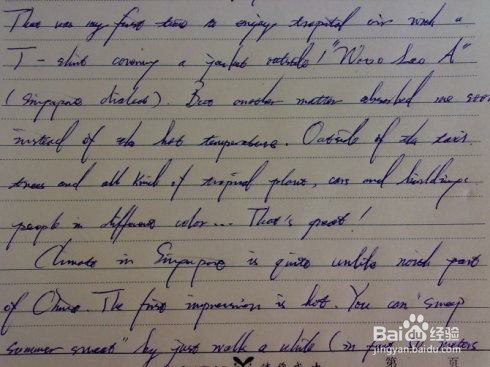 That was my first time to enjoy tropical air with a
T-shirt covering a jacket outside! "Wooo Lao A"
(Singapore dialect). But another matter absorbed me soon
instead of the hot temperature. Outside of the taxi.
trees and all kind of tropical plant, cars and buildings.
people in different color... That's great!
Climate in Singapore is quite unlike north part
of China. The first impression is hot. You can "sweep
summer sweat" by just walk a while (in five meters
Baidu 经验
jingyan.baidu.com
第 页